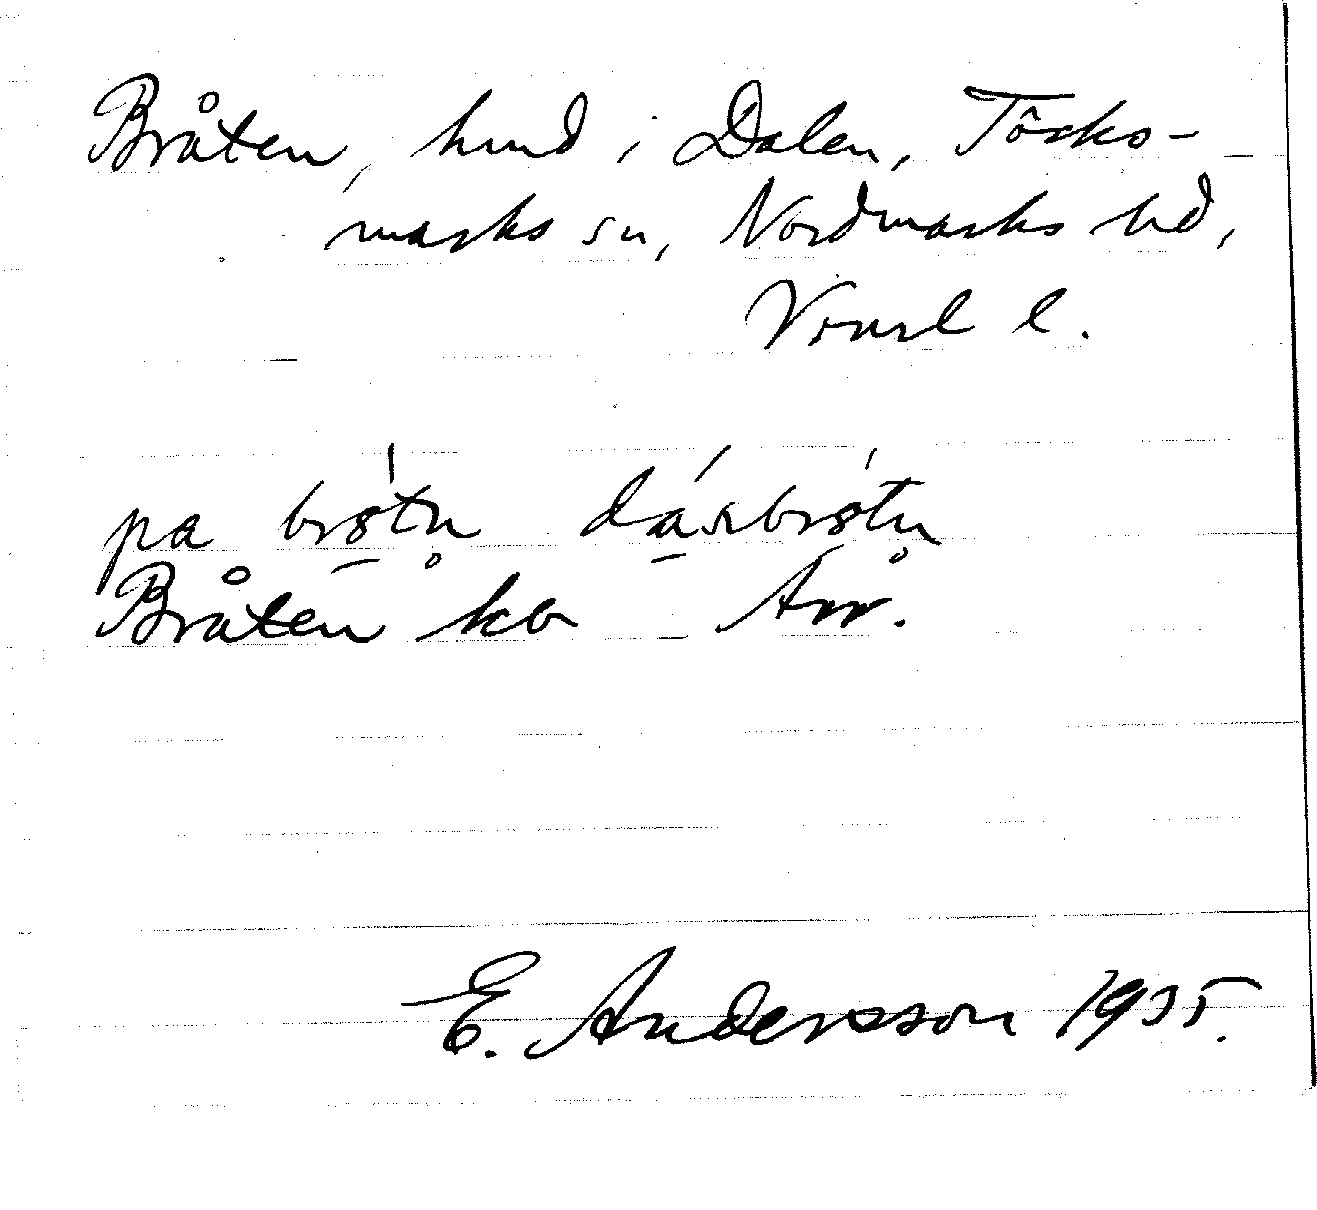 Bråten, hmd i Dalen, Töcks-
marks sn, Nordmarks hd,
Vrml l.
pa brøtn dáɹbrøtn
Bråten kb Avr.
E. Andersson 1935.